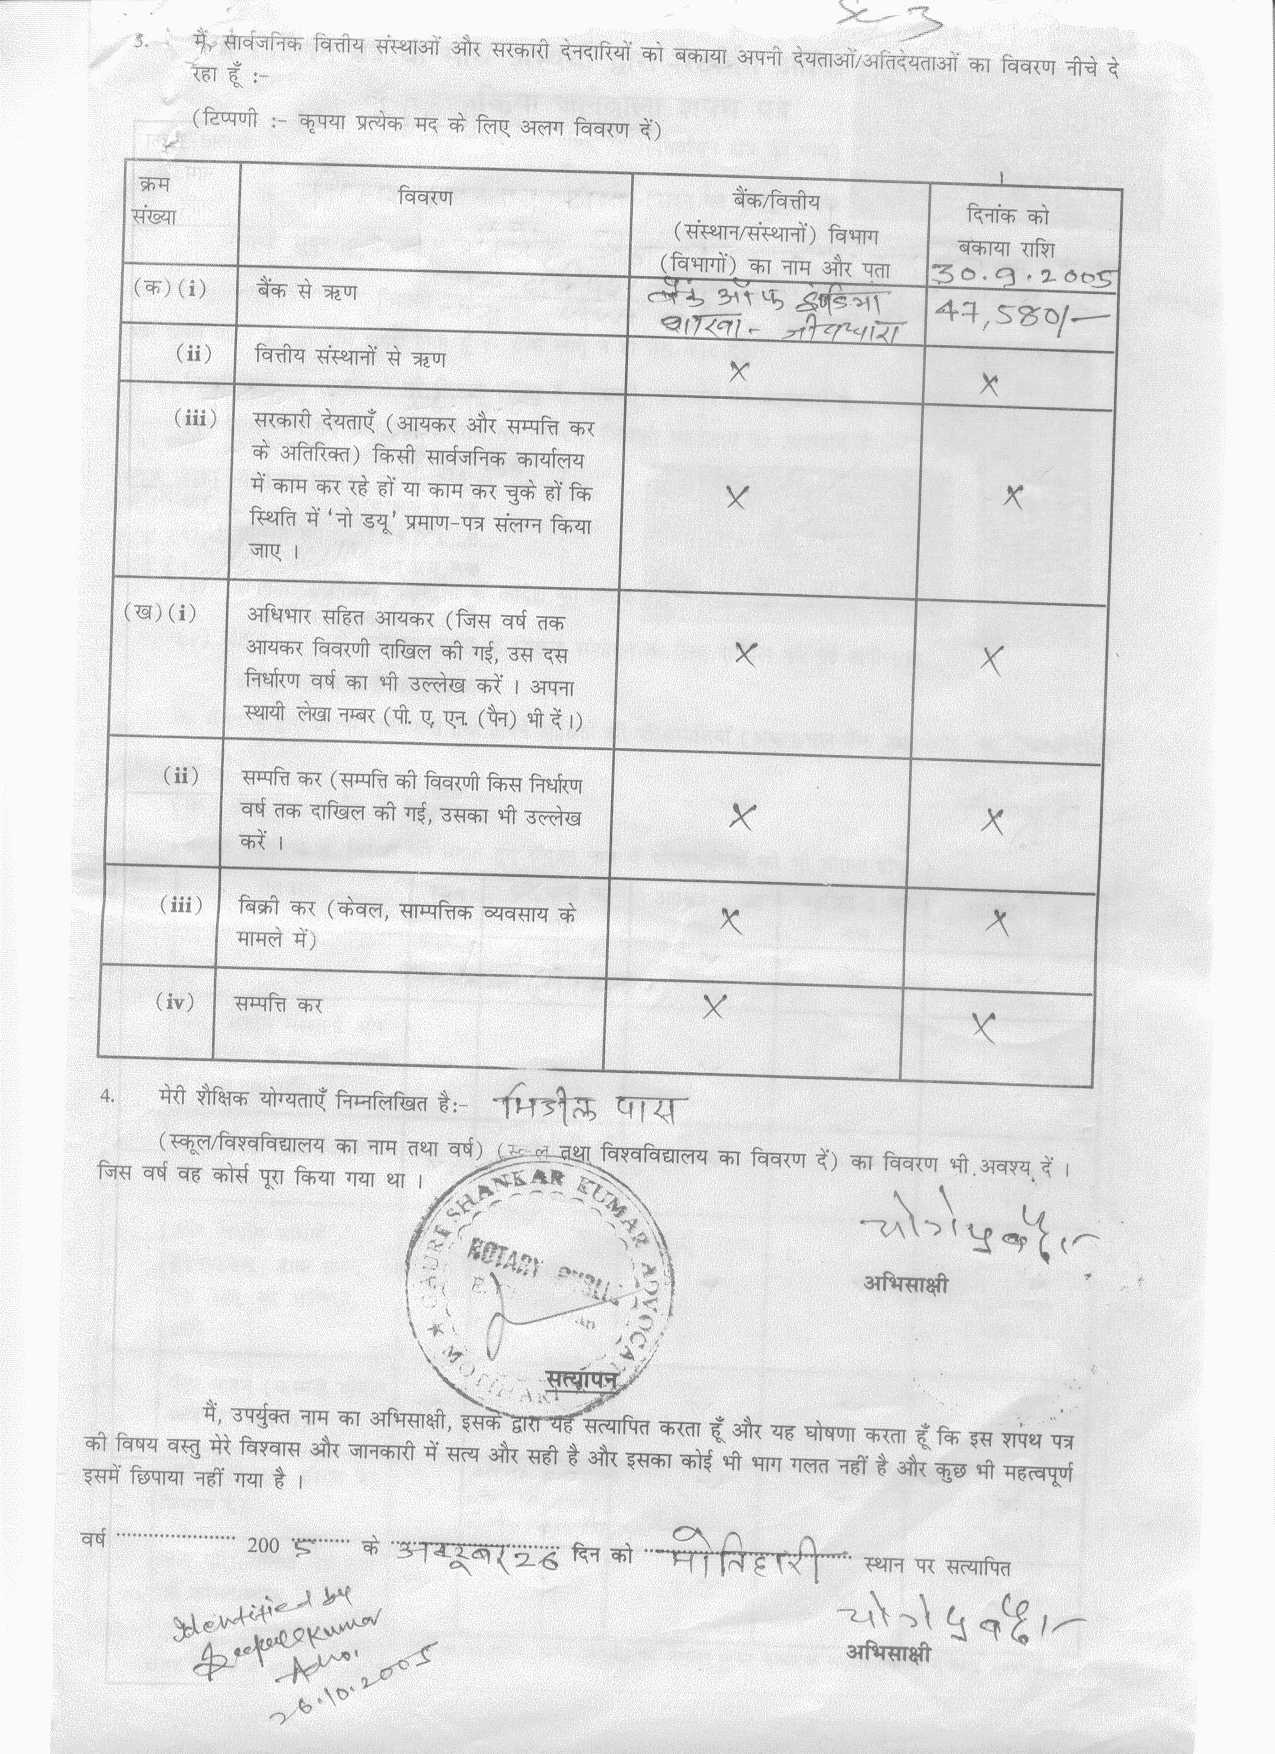 3. मैं, सार्वजनिक वित्तीय संस्थाओं और सरकारी देनदारियों को बकाया अपनी देयताओं/अतिदेयताओं का विवरण नीचे दे
रहा हूँ :-
(टिप्पणी :- कृपया प्रत्येक मद के लिए अलग विवरण दें)
क्रम संख्या विवरण बैंक/वित्तीय (संस्थान/संस्थानों) विभाग (विभागों) का नाम और पता दिनांक को बकाया राशि 30.9.2005
(क)(i) बैंक से ऋण बैंक ऑफ इण्डिया 47,580/-
शाखा -
(ii) वित्तीय संस्थानों से ऋण x x
(iii) सरकारी देयताएँ (आयकर और सम्पत्ति कर
के अतिरिक्त) किसी सार्वजनिक कार्यालय
में काम कर रहे हों या काम कर चुके हों कि x x
स्थिति में 'नो डयू' प्रमाण-पत्र संलग्न किया
जाए ।
(ख)(i) अधिभार सहित आयकर (जिस वर्ष तक
आयकर विवरणी दाखिल की गई, उस दस x x
निर्धारण वर्ष का भी उल्लेख करें । अपना
स्थायी लेखा नम्बर (पी. ए, एन. (पैन) भी दें ।)
(ii) सम्पत्ति कर (सम्पत्ति की विवरणी किस निर्धारण
वर्ष तक दाखिल की गई, उसका भी उल्लेख x x
करें ।
(iii) बिक्री कर (केवल, साम्पत्तिक व्यवसाय के x x
मामले में)
(iv) सम्पत्ति कर x x
4. मेरी शैक्षिक योग्यताएँ निम्नलिखित है:- मिडील पास
(स्कूल/विश्वविद्यालय का नाम तथा वर्ष) (स्कूल तथा विश्वविद्यालय का विवरण दें) का विवरण भी अवश्य दें ।
जिस वर्ष वह कोर्स पूरा किया गया था ।
GAURI SHANKAR KUMAR ADVOCATE
NOTARY PUBLIC
MOTIHARI
अभिसाक्षी
सत्यापन
मैं, उपर्युक्त नाम का अभिसाक्षी, इसके द्वारा यह सत्यापित करता हूँ और यह घोषणा करता हूँ कि इस शपथ पत्र
की विषय वस्तु मेरे विश्वास और जानकारी में सत्य और सही है और इसका कोई भी भाग गलत नहीं है और कुछ भी महत्वपूर्ण
इसमें छिपाया नहीं गया है ।
वर्ष 200 5 के अक्टूबर 26 दिन को मोतिहारी स्थान पर सत्यापित
Identified by
Kumar
Adv.
26.10.2005
अभिसाक्षी